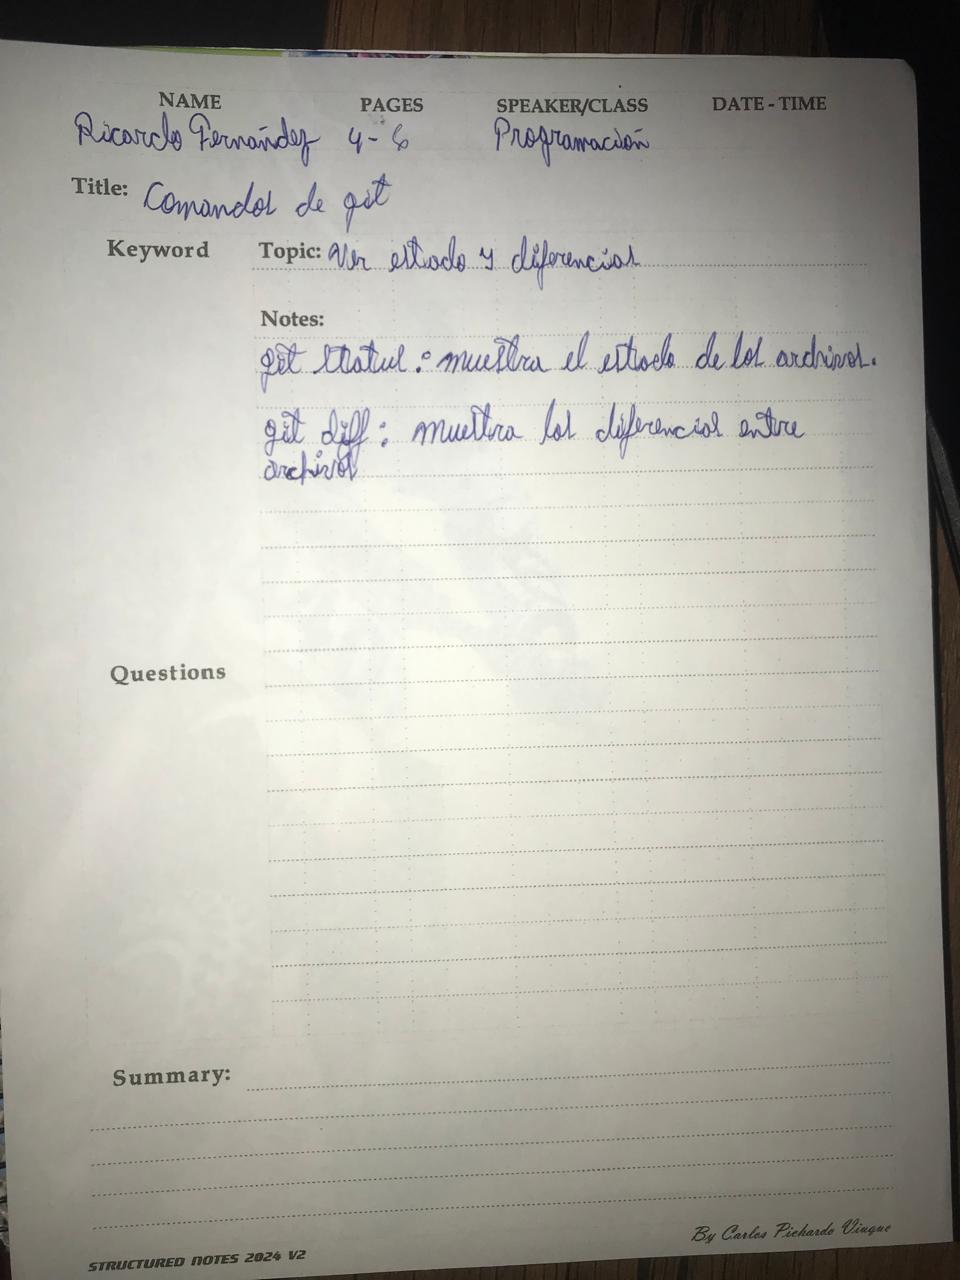 NAME PAGES SPEAKER/CLASS DATE - TIME
Ricardo Fernández 4-6 Programación
Title: Comandos de git
Keyword Topic: Ver estado y diferencias
Notes:
git status: muestra el estado de los archivos.
git diff: muestra las diferencias entre
archivos
Questions
Summary:
By Carlos Pichardo Viuque
STRUCTURED NOTES 2024 V2